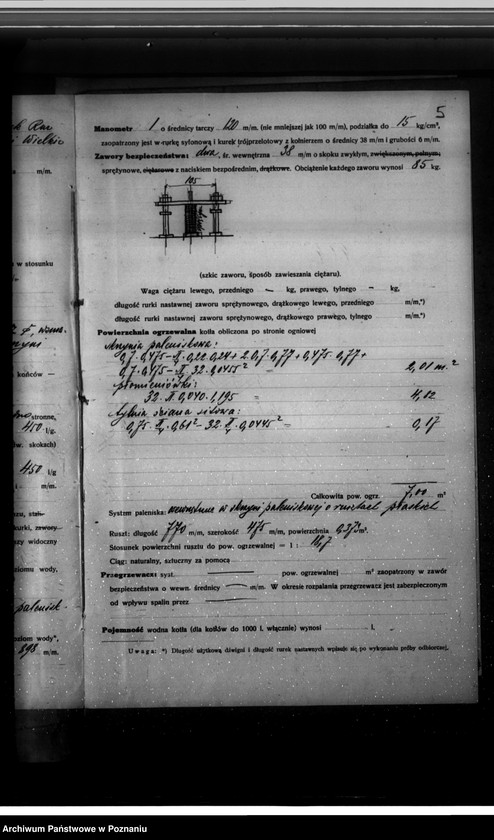 5
Manometr 1 o średnicy tarczy 120 m/m. (nie mniejszej jak 100 m/m), podziałka do 15 kg/cm²,
zaopatrzony jest w rurkę syfonową i kurek trójprzelotowy z kołnierzem o średnicy 38 m/m i grubości 6 m/m.
Zawory bezpieczeństwa: dwa, śr. wewnętrzna 38 m/m o skoku zwykłym, zwiększonym, pełnym,
sprężynowe, ciężarowe z naciskiem bezpośrednim, drążkowe. Obciążenie każdego zaworu wynosi 85 kg.
105
(szkic zaworu, sposób zawieszania ciężaru).
Waga ciężaru lewego, przedniego — kg, prawego, tylnego — kg,
długość rurki nastawnej zaworu sprężynowego, drążkowego lewego, przedniego m/m.*)
długość rurki nastawnej zaworu sprężynowego, drążkowego prawego, tylnego m/m.*)
Powierzchnia ogrzewalna kotła obliczona po stronie ogniowej
skrzynia paleniskowa:
0,7 . 0,475 - π/4 . 0,22 . 0,24 + 2 . 0,7 . 0,77 + 0,475 . 0,77 +
0,7 . 0,475 - π/4 . 32 . 0,0455² = 2,01 m²
płomieniówki:
32 . π . 0,040 . 1,195 = 4,82
tylnia ściana sitowa:
0,75 . π/4 . 0,61² - 32 . π/4 . 0,0445² = 0,17
Całkowita pow. ogrz. 7,00 m²
System paleniska: wewnętrzne w skrzyni paleniskowej o rusztach płaskich
Ruszt: długość 770 m/m, szerokość 475 m/m, powierzchnia 0,373 m².
Stosunek powierzchni rusztu do pow. ogrzewalnej = 1 : 18,7
Ciąg: naturalny, sztuczny za pomocą
Przegrzewacz: syst. — pow. ogrzewalnej m² zaopatrzony w zawór
bezpieczeństwa o wewn. średnicy — m/m. W okresie rozpalania przegrzewacz jest zabezpieczonym
od wpływu spalin przez —
Pojemność wodna kotła (dla kotłów do 1000 l. włącznie) wynosi l.
Uwaga: *) Długość użytkową dźwigni i długość rurek nastawnych wpisuje się po wykonaniu próby odbiorczej.
m/m.
w stosunku
końców —
stronne,
450 l/g.
w. skokach)
450 l/g
m/m.
kurki, zawory
szy widoczny
ziomu wody,
oziom wody",
898 m/m.
Archiwum Państwowe w Poznaniu